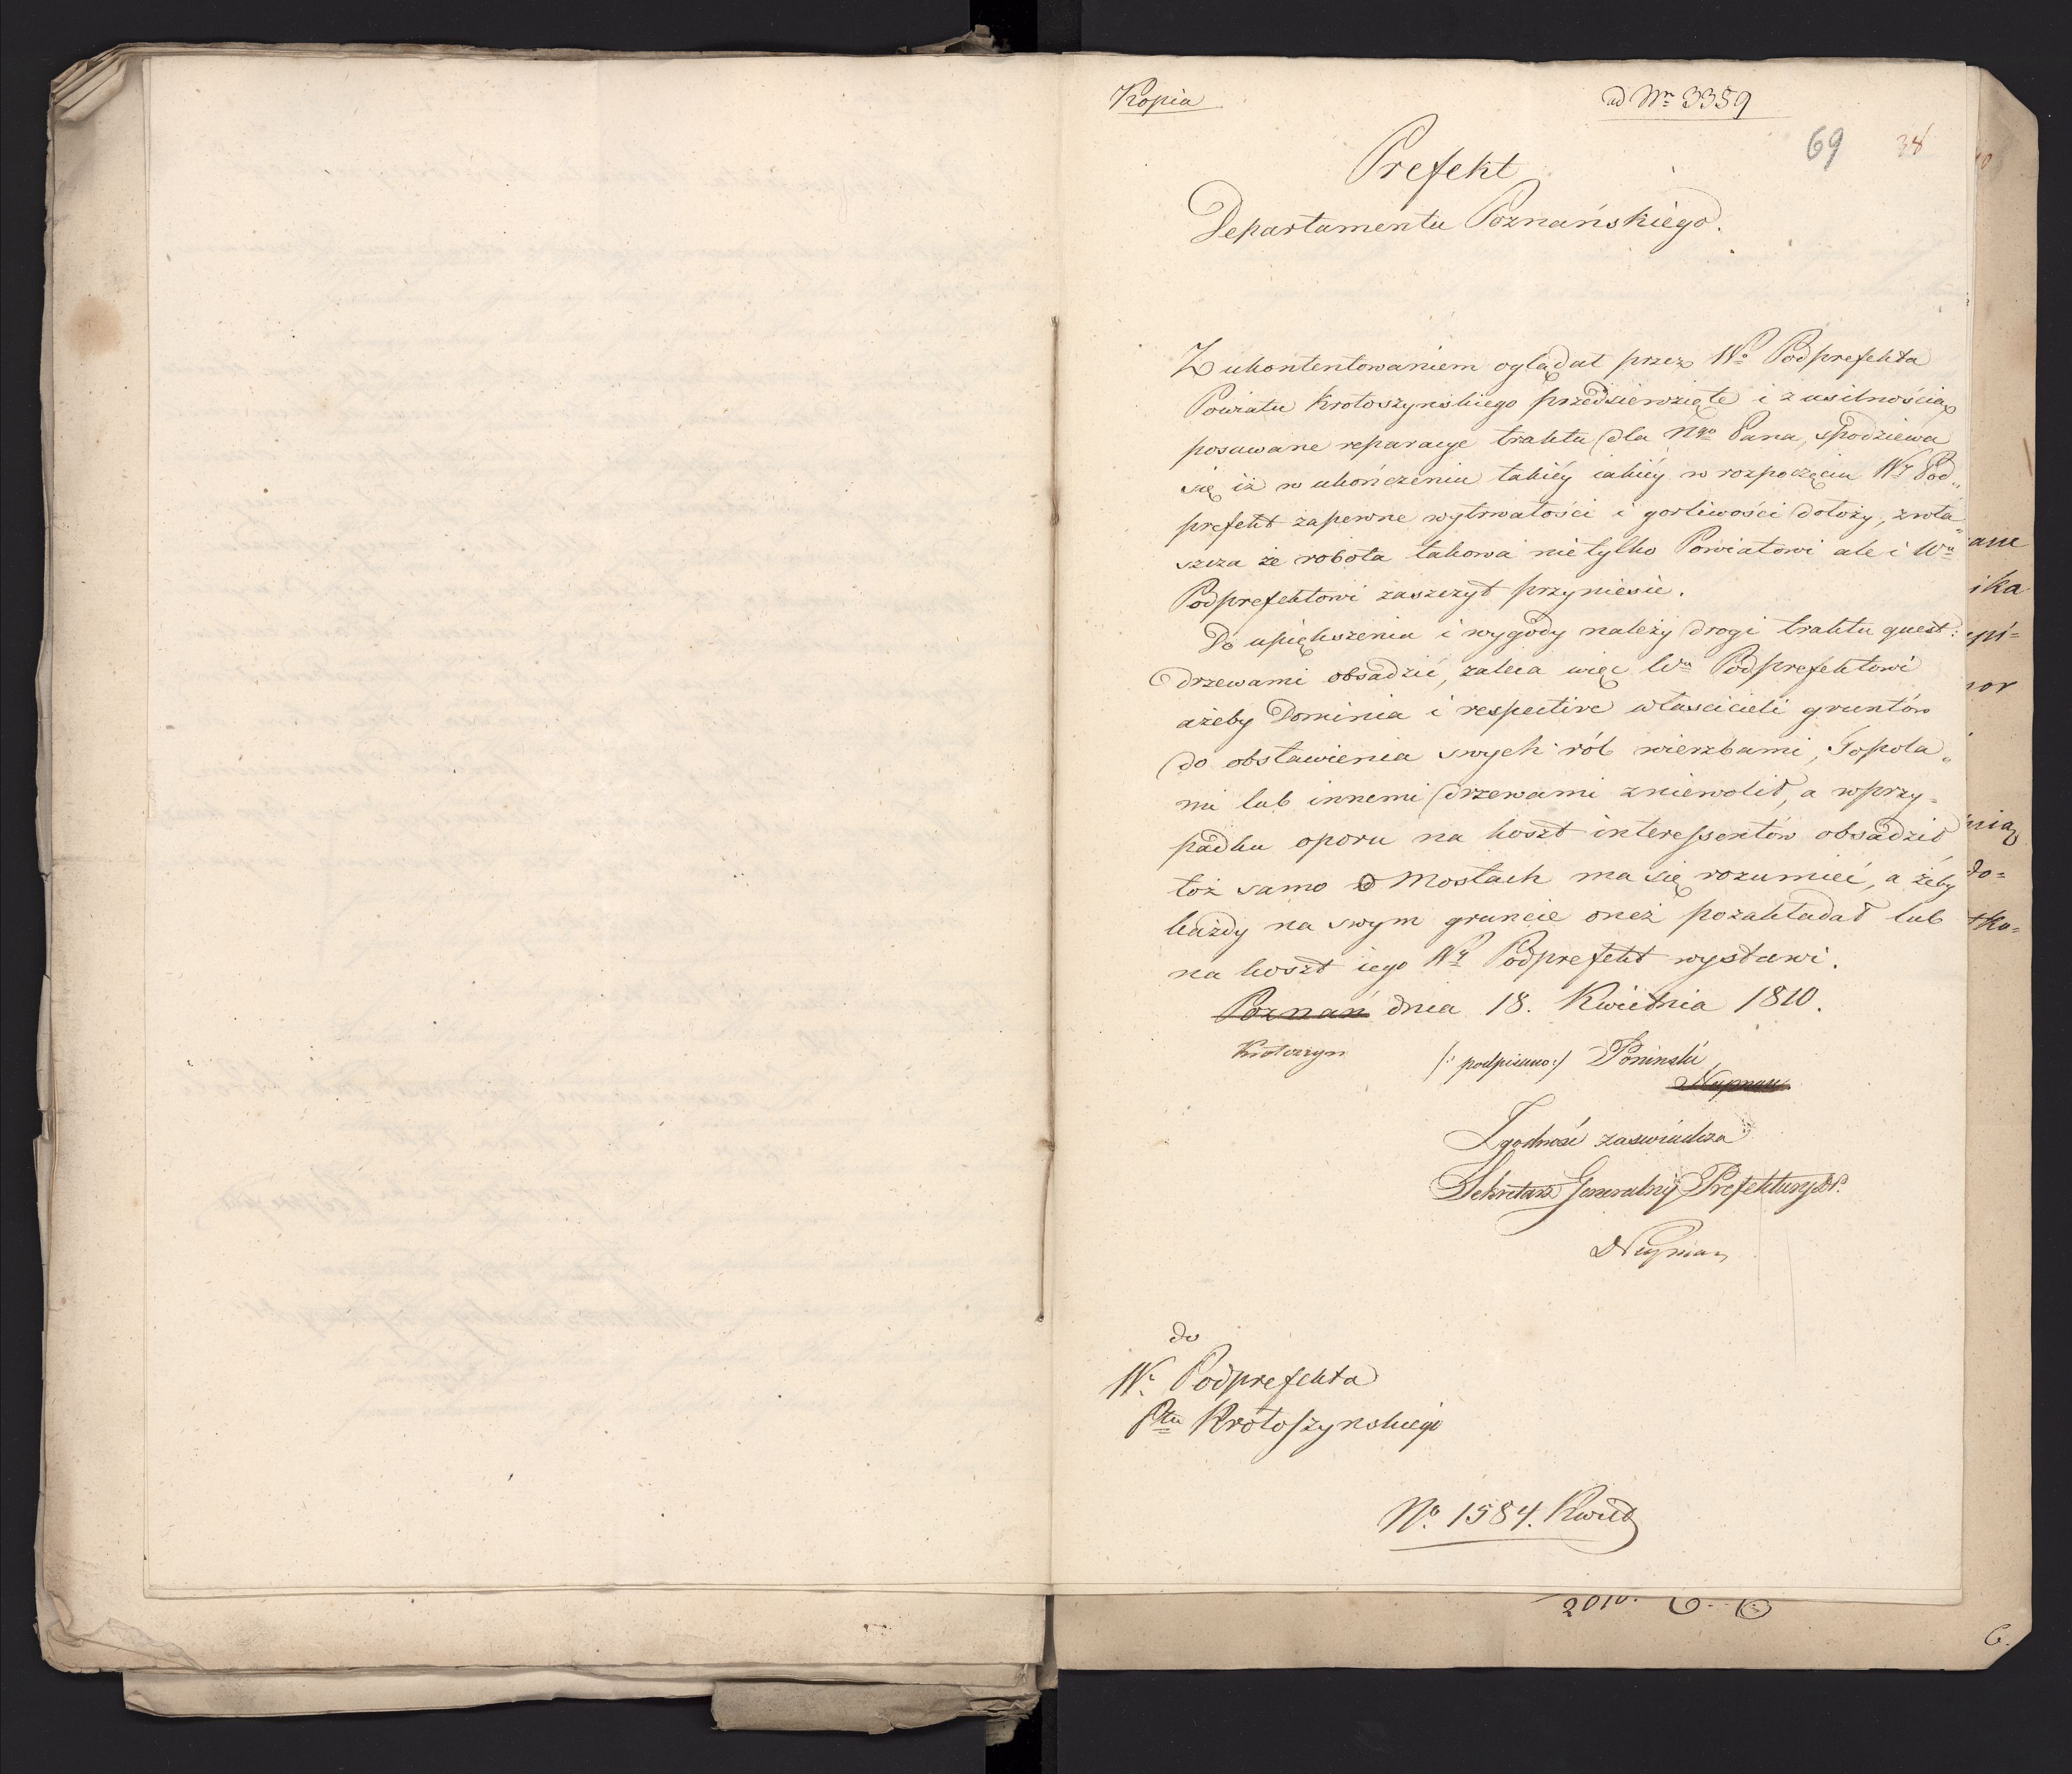 Kopia
ad Nr 3359
69 38
Prefekt
Departamentu Poznańskiego.
Z ukontentowaniem oglądał przez Wo Podprefekta
Powiatu Krotoszynskiego przedsięwzięte i z usilnością
posuwane reparacye traktu dla Ngo Pana, spodziewa
się iż w ukończeniu takiéy iakiéy w rozpoczęciu Wy Pod„
prefekt zapewne wytrwałości i gorliwości dołoży, zwła„
szcza że robota takowa nietylko Powiatowi ale i Wu
Podprefektowi zaszczyt przyniesie.
Do upiększenia i wygody należy drogi traktu quest:
drzewami obsadzić, zaleca więc Wu Podprefektowi
ażeby Dominia i respective właścicieli gruntów
do obstawienia swych ról wierzbami, Topola„
mi lub innemi drzewami zniewolił, a wprzy„
padku oporu na koszt interessentów obsadził
toż samo o Mostach ma się rozumieć, a żeby
każdy na swym gruncie oneż pozakładał lub
na koszt iego Wy Podprefekt wystawi.
Poznań dnia 18. Kwietnia 1810.
Krotoszyn
/: podpisano:/ Poninski
Neyman
Zgodność zaswiadcza
Sekretarz Generalny Prefektury DP.
Neyman
do
W. Podprefekta
Ptu Krotoszynskiego
No 1584. Kwiet